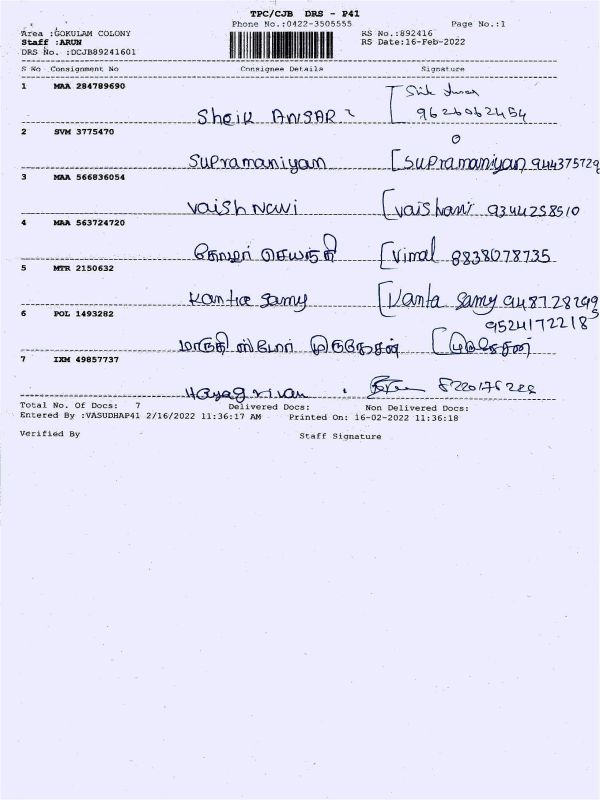 TPC/CJB DRS - P41
Phone No.:0422-3505555 Page No.:1
Area :GOKULAM COLONY RS No.:892416
Staff :ARUN RS Date:16-Feb-2022
DRS No. :DCJB89241601
S No Consignment No Consignee Details Signature
1 MAA 284789690
Sheik ANSAR 9626062454
2 SVM 3775470
SuPramaniyan [SuPramaniyan 944375729
3 MAA 566836054
Vaishnavi [Vaishnavi 9344258510
4 MAA 563724720
[Vimal 8838078735
5 MTR 2150632
Kantha Samy [Kanta Samy 9487282995
6 POL 1493282 9524172218
மாருதி ஸ்டோர் முருகேசன் [முருகேசன்
7 IXM 49857737
Hayagrivan 8220176228
Total No. Of Docs: 7 Delivered Docs: Non Delivered Docs:
Entered By :VASUDHAP41 2/16/2022 11:36:17 AM Printed On: 16-02-2022 11:36:18
Verified By Staff Signature